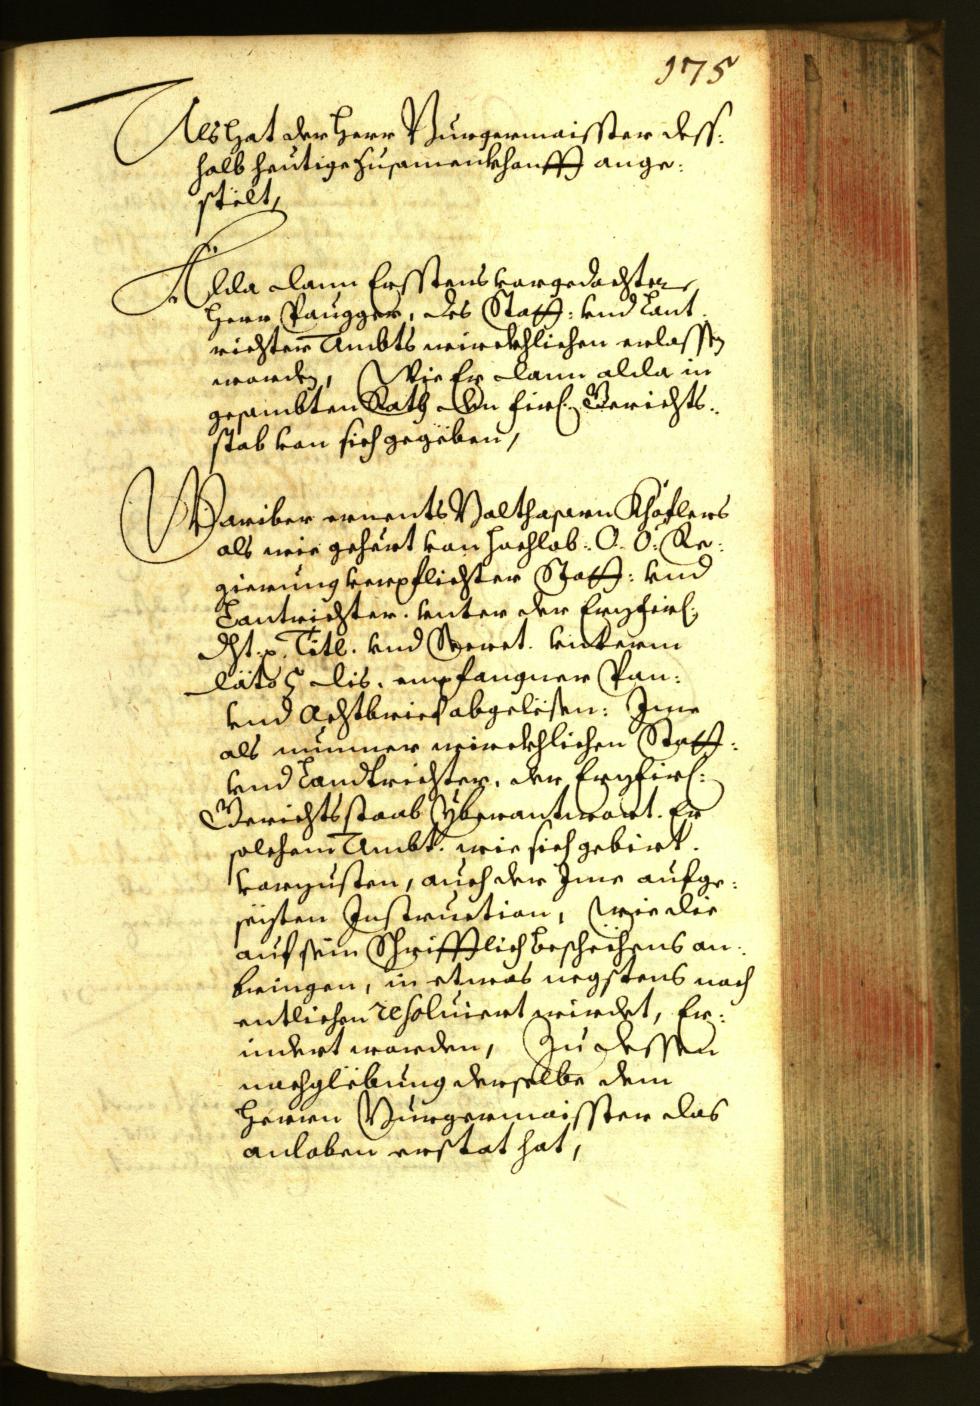 175
Als hat der Herr Burgermaisster dess:
halb heutige Zusamenkhonfft ange:
stelt,
Alda dann Ersstens vorgedachter
Herr Paugger, des Statt: vnd Lant
richter Ambts wirckhlichen erlassen
worden, Wie Er dann alda in
gesambten Rath den firl: Gerichts:
stab von sich gegeben,
Wariber ernents Balthasarn Khöflers
als wie gehört von hochlob: O: Ö: Re:
gierung verpflichter Statt: vnd
Lantrichter. vnter der Erzfirl:
Dht: p. Titl. vnd Secret. vnterm
dato 5 dis. empfangner Pan:
vnd Achtbrief abgelesen: Jme
als nunmer wirckhlichen Statt:
vnd Landtrichter, der Erzfirl:
Gerichtsstaab yberantwort. Er
solchem Ambt. wie sich gebirt.
vorzusten, auch der Jme aufge:
sezten Instruction, wie die
auf sein Schrifftlich beschechens an:
bringen, in etwas negstens noch
entlichen resoluiert wirdet, Er:
indert worden, Zu dessen
nachglebung derselbe dem
Herrn Burgermaisster das
anloben erstat hat,